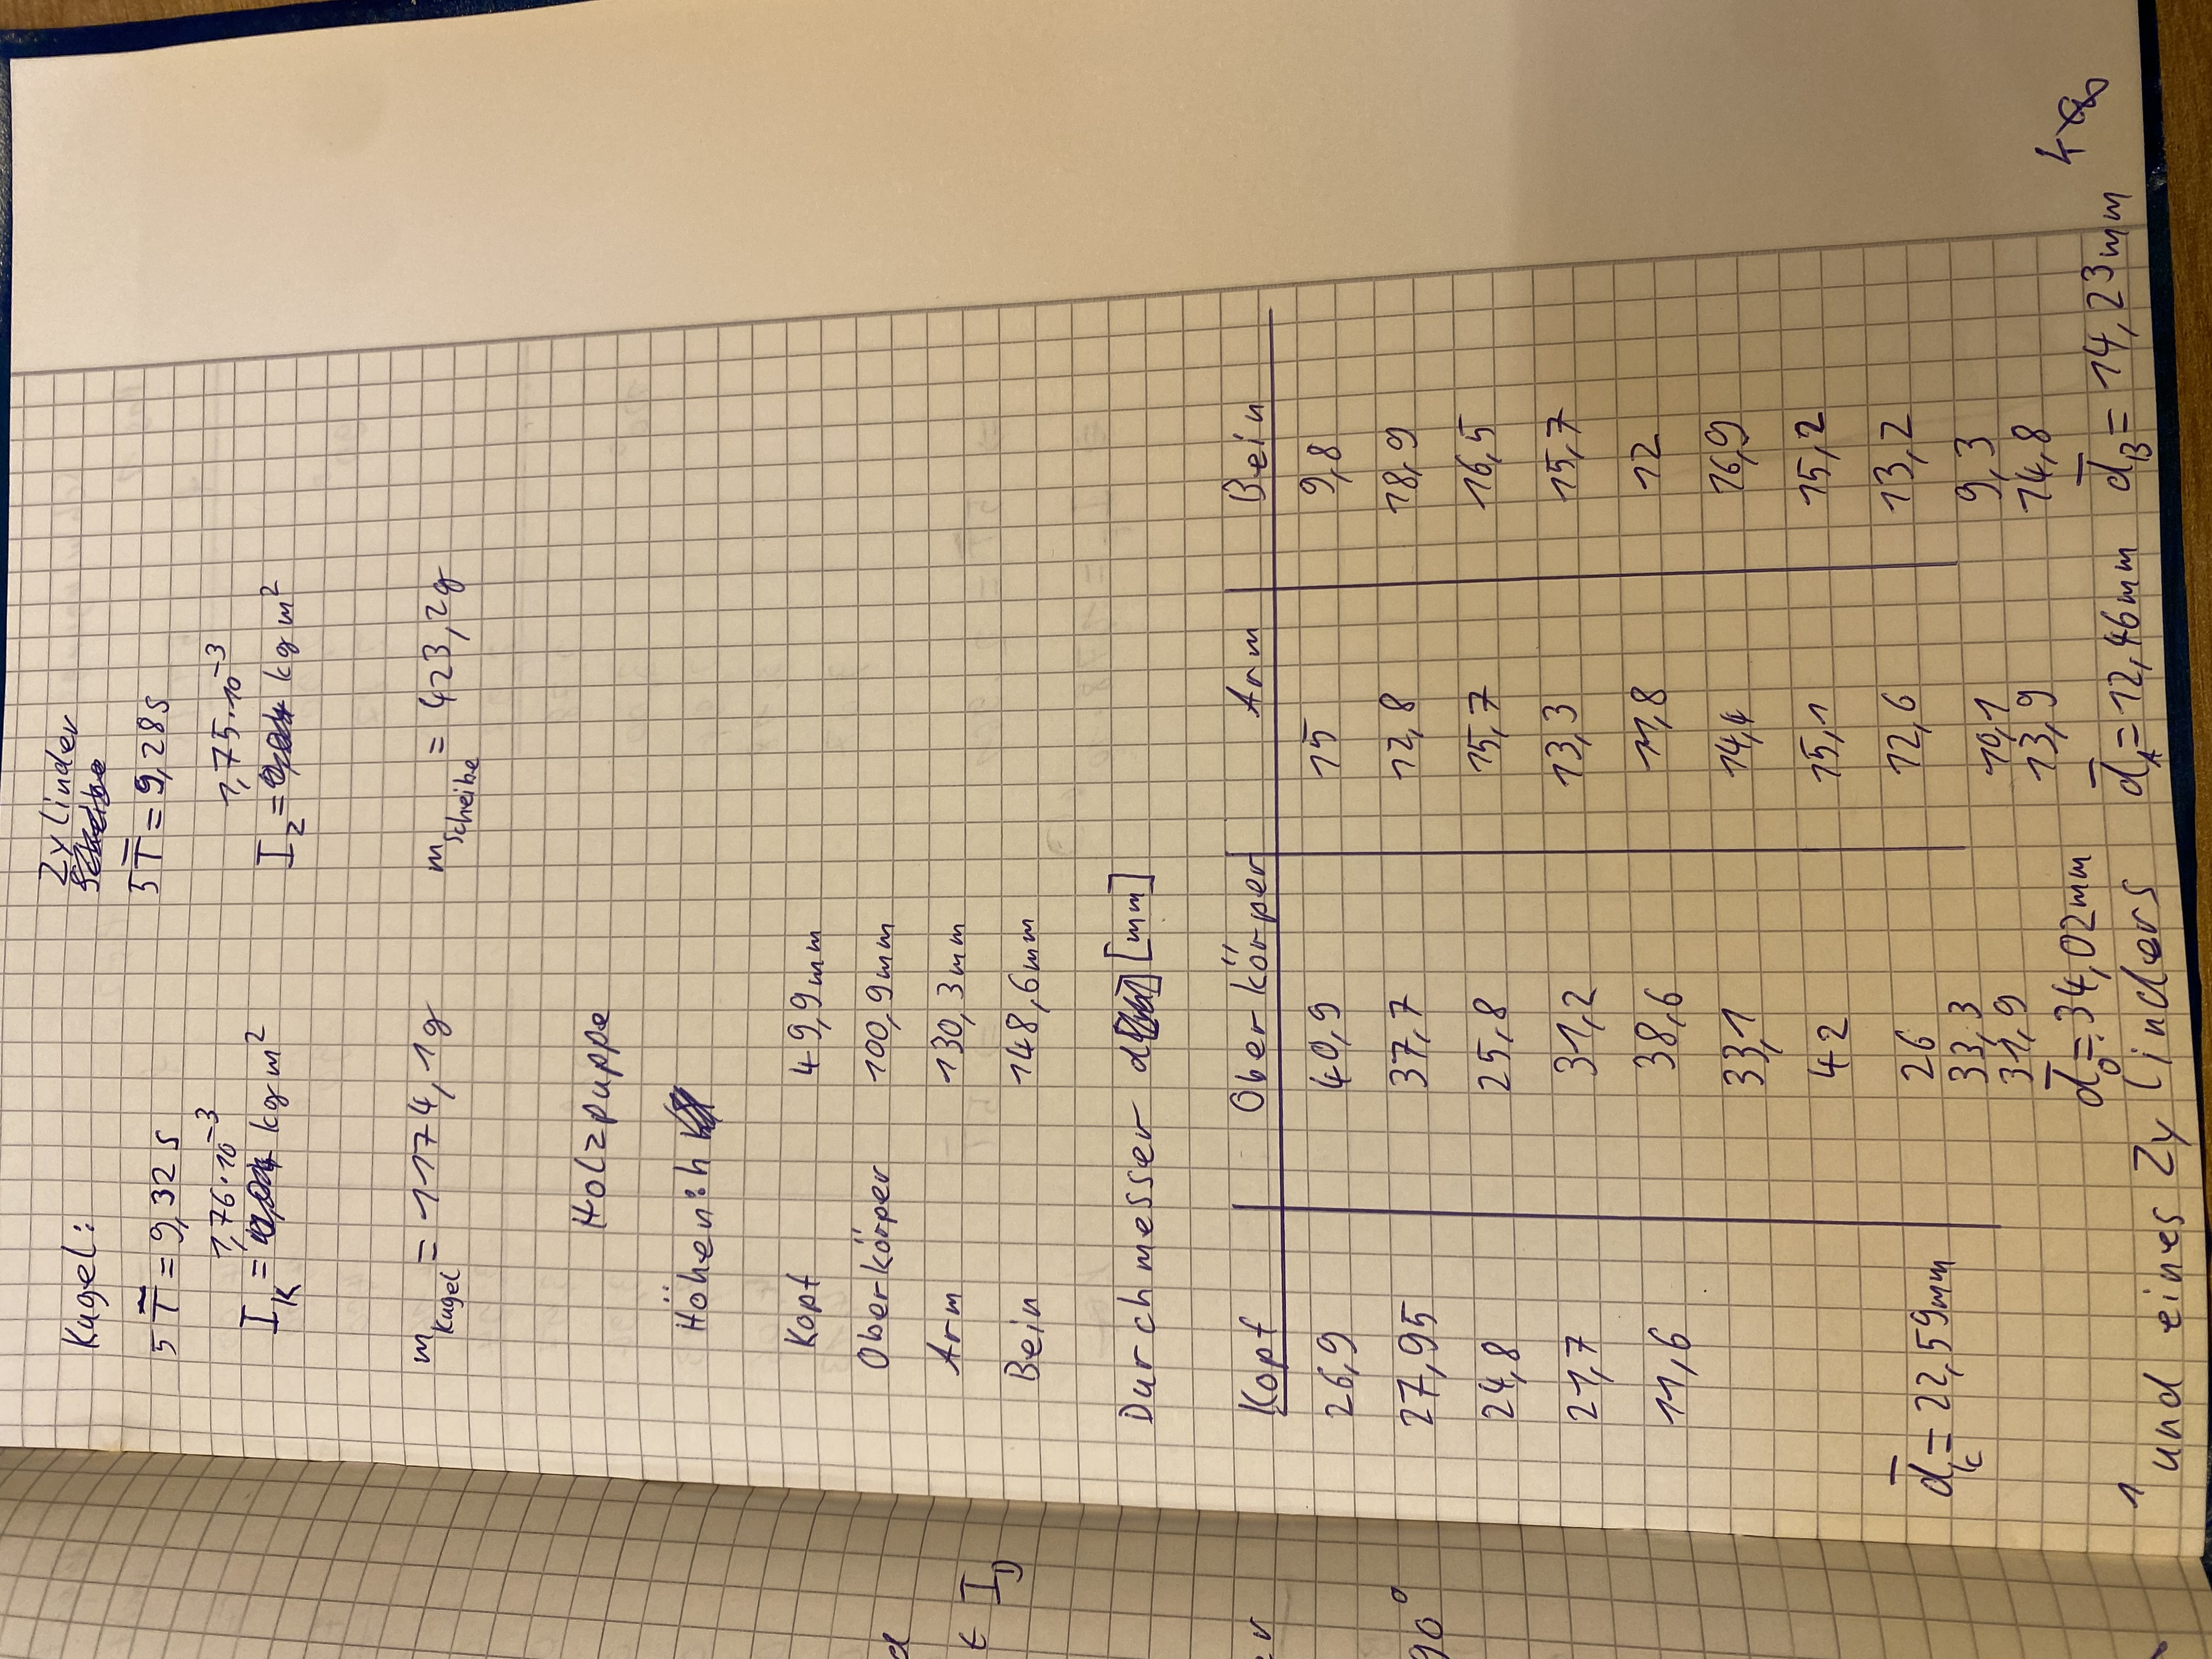 Kugel: Zylinder
5 T̿ = 9,32 s 5 T̿ = 9,28s
1,76·10⁻³ 1,75·10⁻³
I_K = kg m² I_Z = kg m²
m_Kugel = 1174,1g m_Scheibe = 423,2g
Holzpuppe
Höhen: h
Kopf 49,9mm
Oberkörper 100,9mm
Arm 130,3mm
Bein 148,6mm
d
t I_D
Durchmesser d [mm]
er
Kopf Oberkörper Arm Bein
26,9 40,9 15 9,8
90°
27,95 37,7 12,8 18,9
24,8 25,8 15,7 16,5
21,7 31,2 13,3 15,7
11,6 38,6 11,8 12
33,1 14,4 16,9
42 15,1 15,2
26 12,6 13,2
33,3 10,1 9,3
31,9 13,9 14,8
d̄_K = 22,59mm
d̄_O = 34,02mm d̄_A = 12,46mm d̄_B = 14,23mm
¹ und eines Zylinders